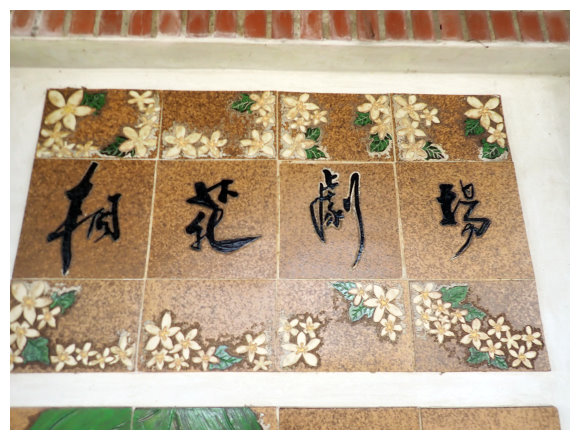 桐花劇場